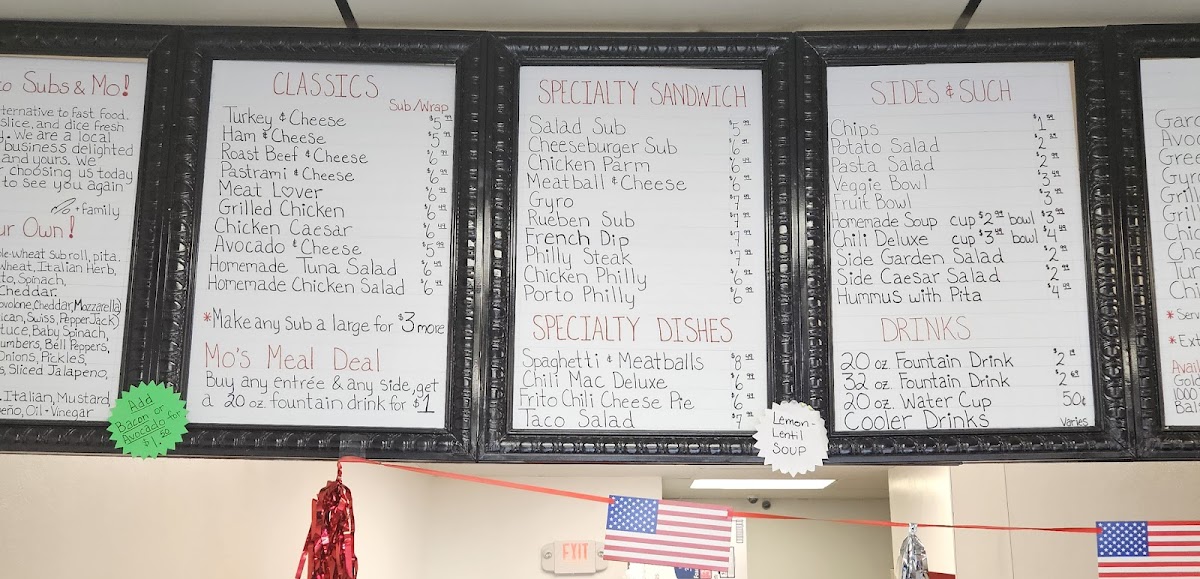 to Subs & Mo!
ternative to Fast food.
slice, and dice fresh
y. We are a local
business delighted
and yours. We
choosing us today
to see you again
+family
ur Own!
le-wheat sub roll, pita.
Wheat, Italian Herb,
to, Spinach,
Cheddar.
ovolone, Cheddar, Mozzarella)
ican, Swiss, Pepper Jack)
tuce, Baby Spinach,
umbers, Bell Peppers,
Onions, Pickles,
s, Sliced Jalapeno,
, Italian, Mustard,
peño, Oil • Vinegar
Add
Bacon or
Avocado for
$1.50
CLASSICS
Sub/Wrap
Turkey & Cheese $5.99
Ham & Cheese $5.99
Roast Beef & Cheese $6.99
Pastrami & Cheese $6.99
Meat Lover $6.99
Grilled Chicken $6.99
Chicken Caesar $6.99
Avocado & Cheese $5.99
Homemade Tuna Salad $6.99
Homemade Chicken Salad $6.99
*Make any sub a large for $3 more
Mo's Meal Deal
Buy any entrée & any side, get
a 20 oz. fountain drink for $1
SPECIALTY SANDWICH
Salad Sub $5
Cheeseburger Sub $6
Chicken Parm $6
Meatball & Cheese $6
Gyro $7
Rueben Sub $7
French Dip $7
Philly Steak $7
Chicken Philly $6
Porto Philly $6
SPECIALTY DISHES
Spaghetti & Meatballs $8
Chili Mac Deluxe $6
Frito Chili Cheese Pie $6
Taco Salad $7
Lemon-
Lentil
Soup
SIDES & SUCH
Chips $1
Potato Salad $2
Pasta Salad $2
Veggie Bowl $3
Fruit Bowl $3
Homemade Soup cup $2.99 bowl $3.99
Chili Deluxe cup $3.99 bowl $4
Side Garden Salad $2
Side Caesar Salad $2
Hummus with Pita $4
DRINKS
20 oz. Fountain Drink $2
32 oz. Fountain Drink $2
20 oz. Water Cup 50¢
Cooler Drinks Varies
Gard
Avoc
Gree
Grill
Grill
Chic
Che
Tun
Chi
*Serv
*Ext
Avail
Gold
1000
Bal
EXIT